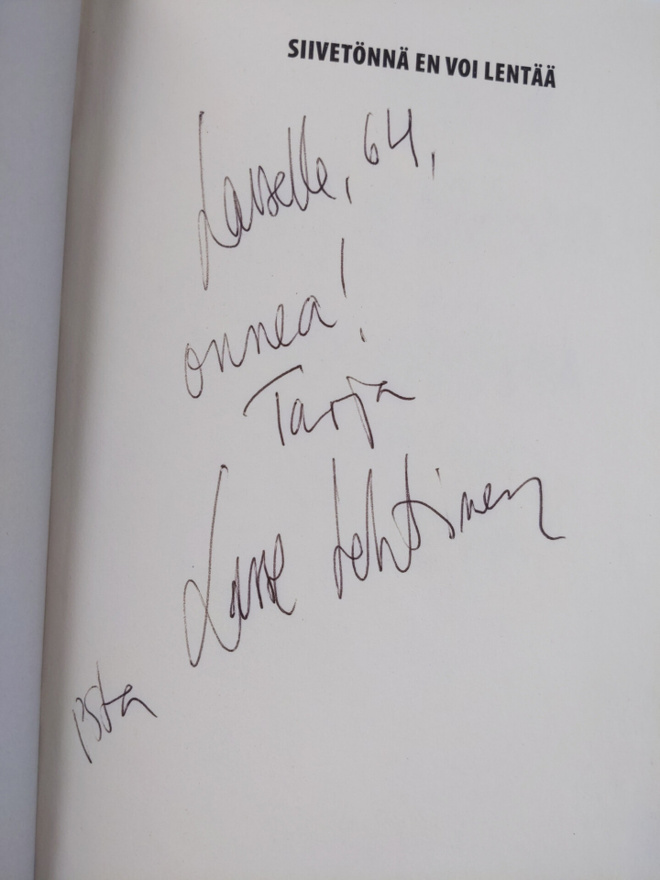 SIIVETÖNNÄ EN VOI LENTÄÄ
Lasselle, 64,
onnea!
Tarja
Lasse Lehtinen